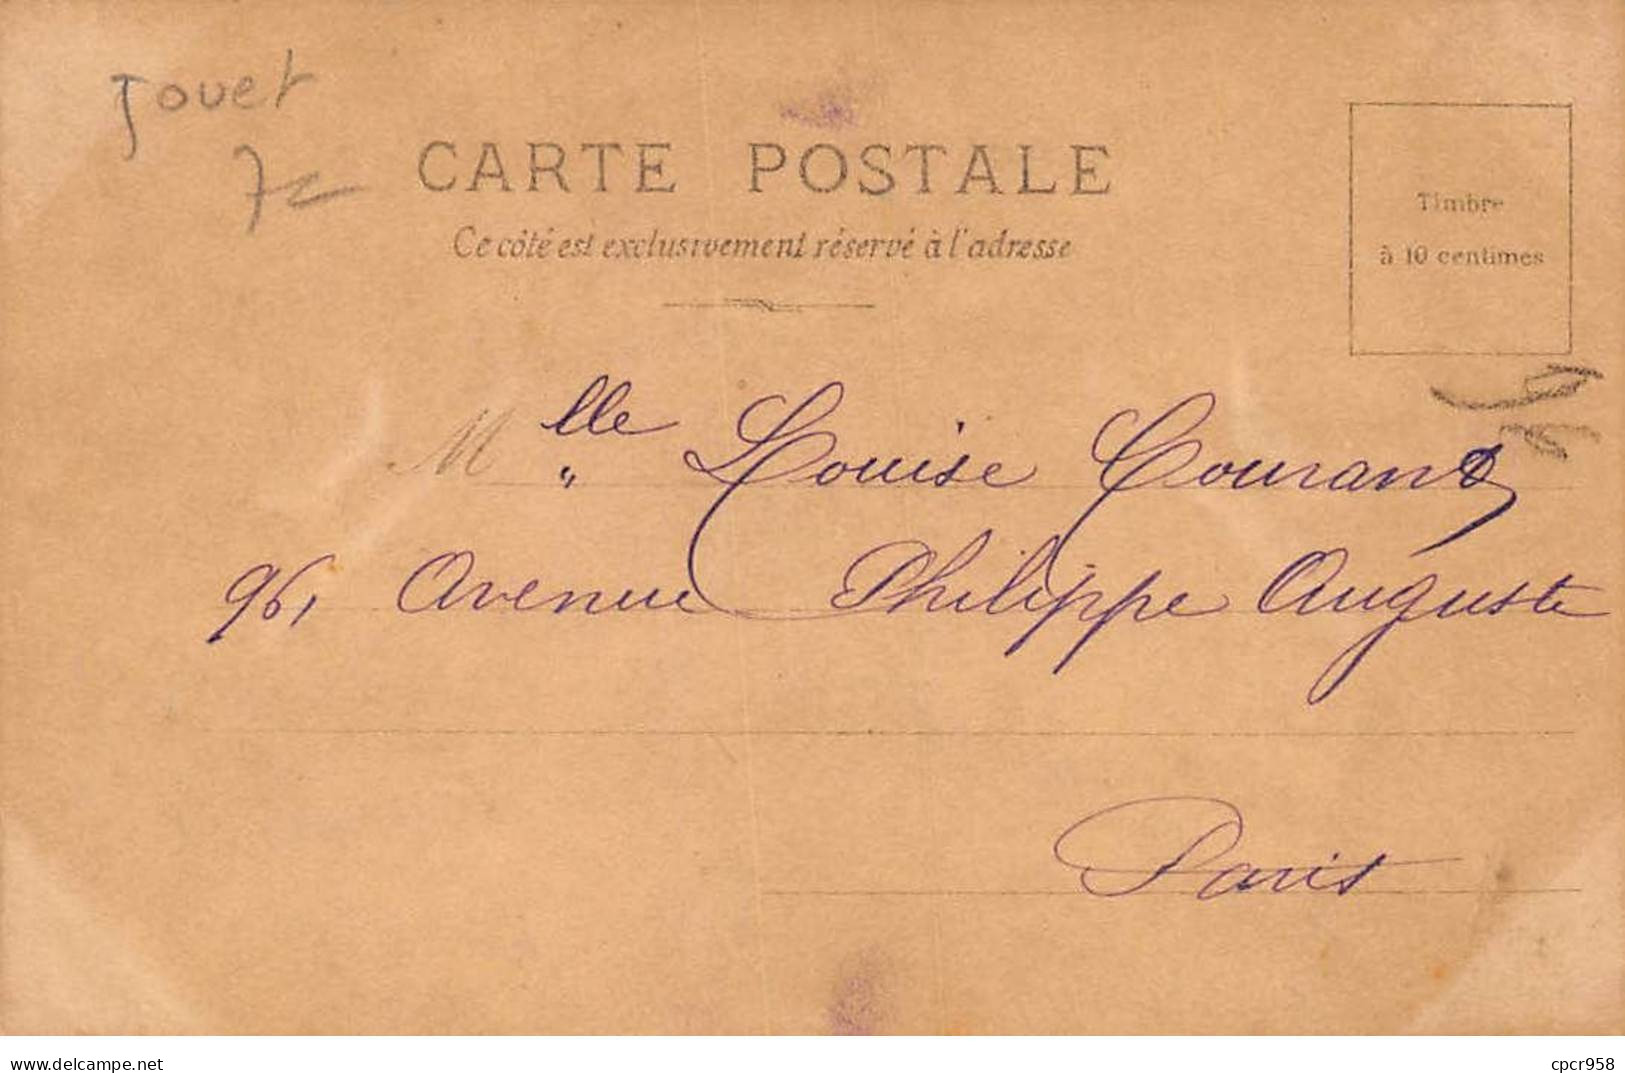 Jouet
7
CARTE POSTALE
Ce côté est exclusivement réservé à l'adresse
Timbre
à 10 centimes
Mlle Louise Courant
96, Avenue Philippe Auguste
Paris
www.delcampe.net
cpcr958